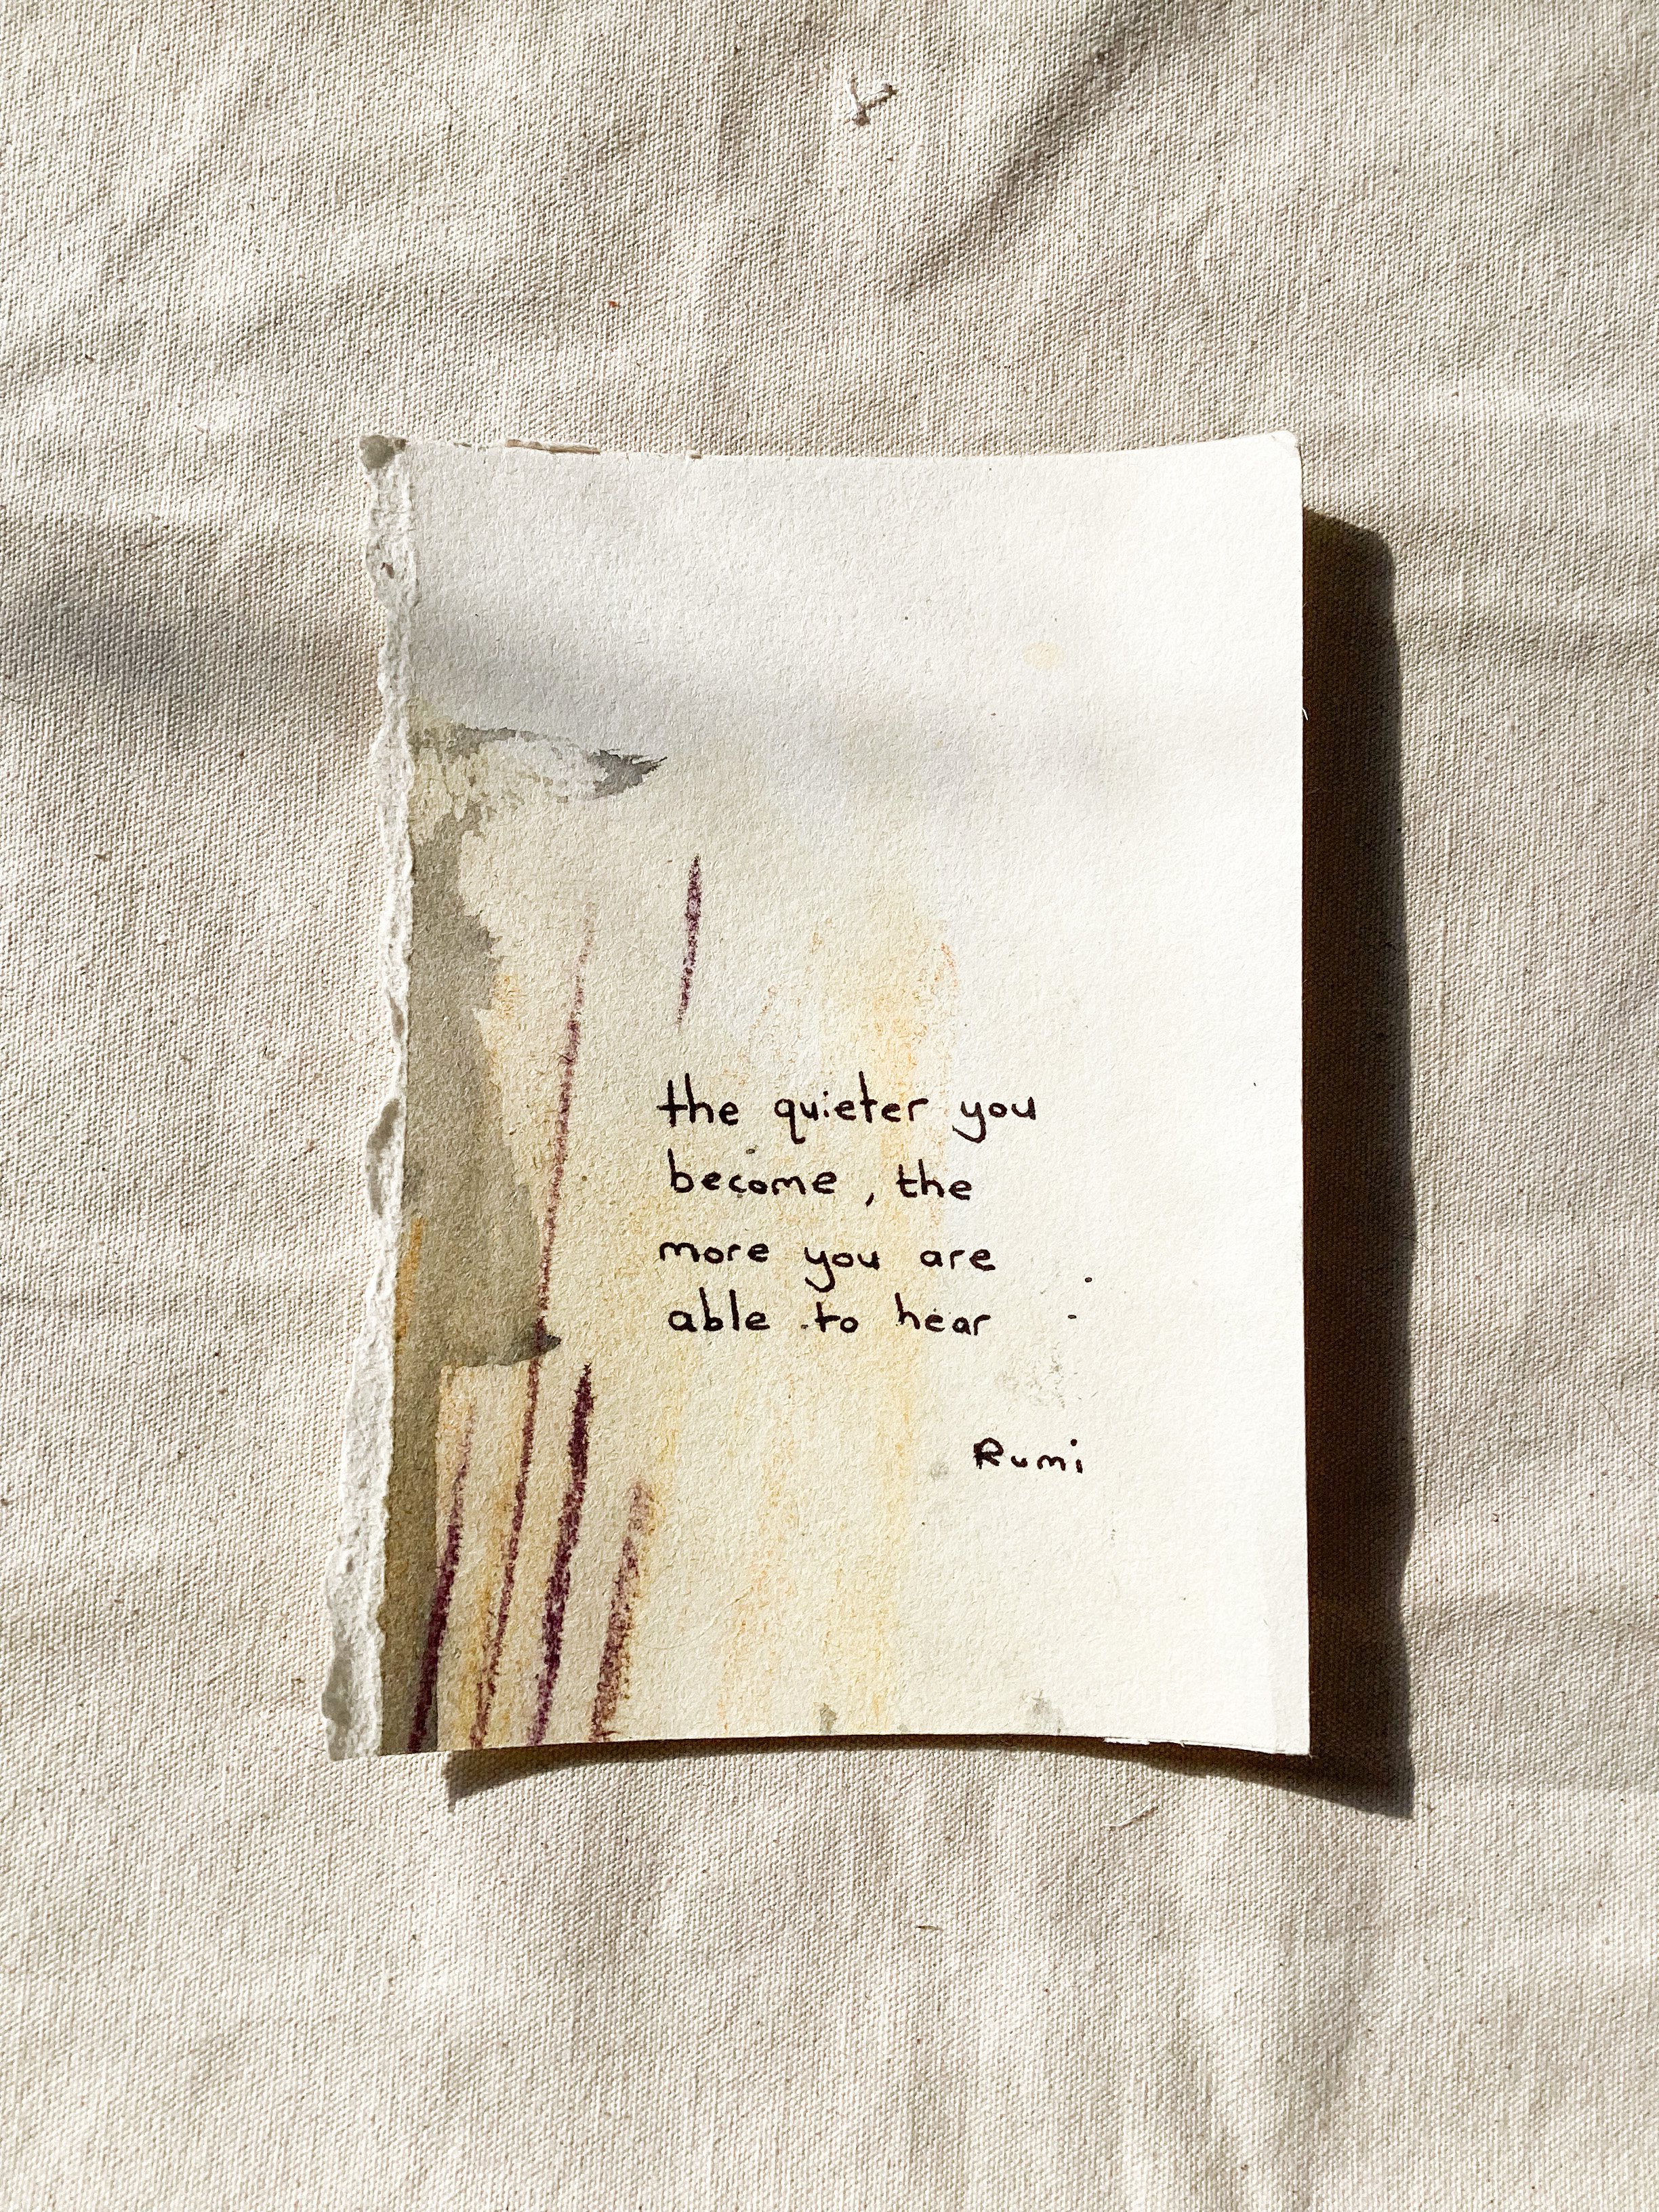 the quieter you
become, the
more you are
able to hear
Rumi